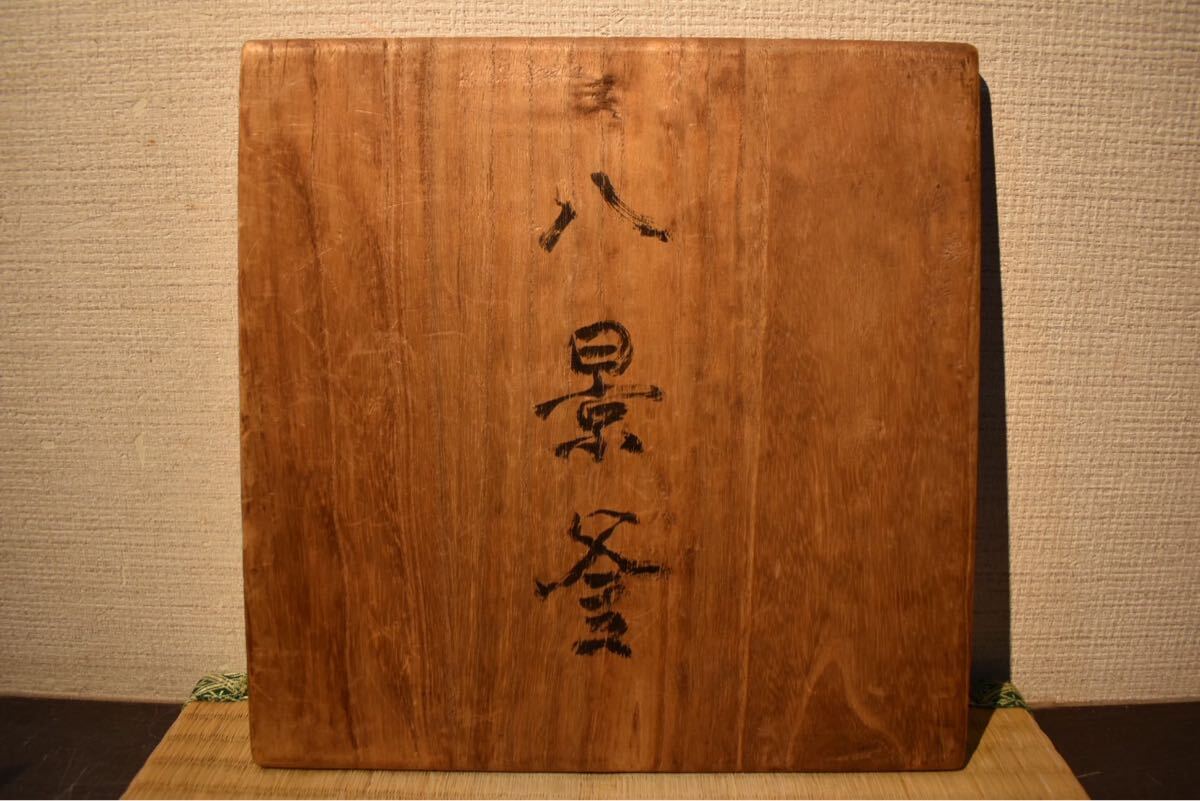 八景釜